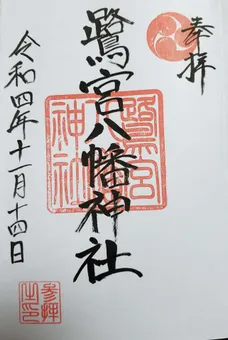 奉拝
鷺宮八幡神社
令和四年十一月十四日
鷺宮八幡神社
参拝之印